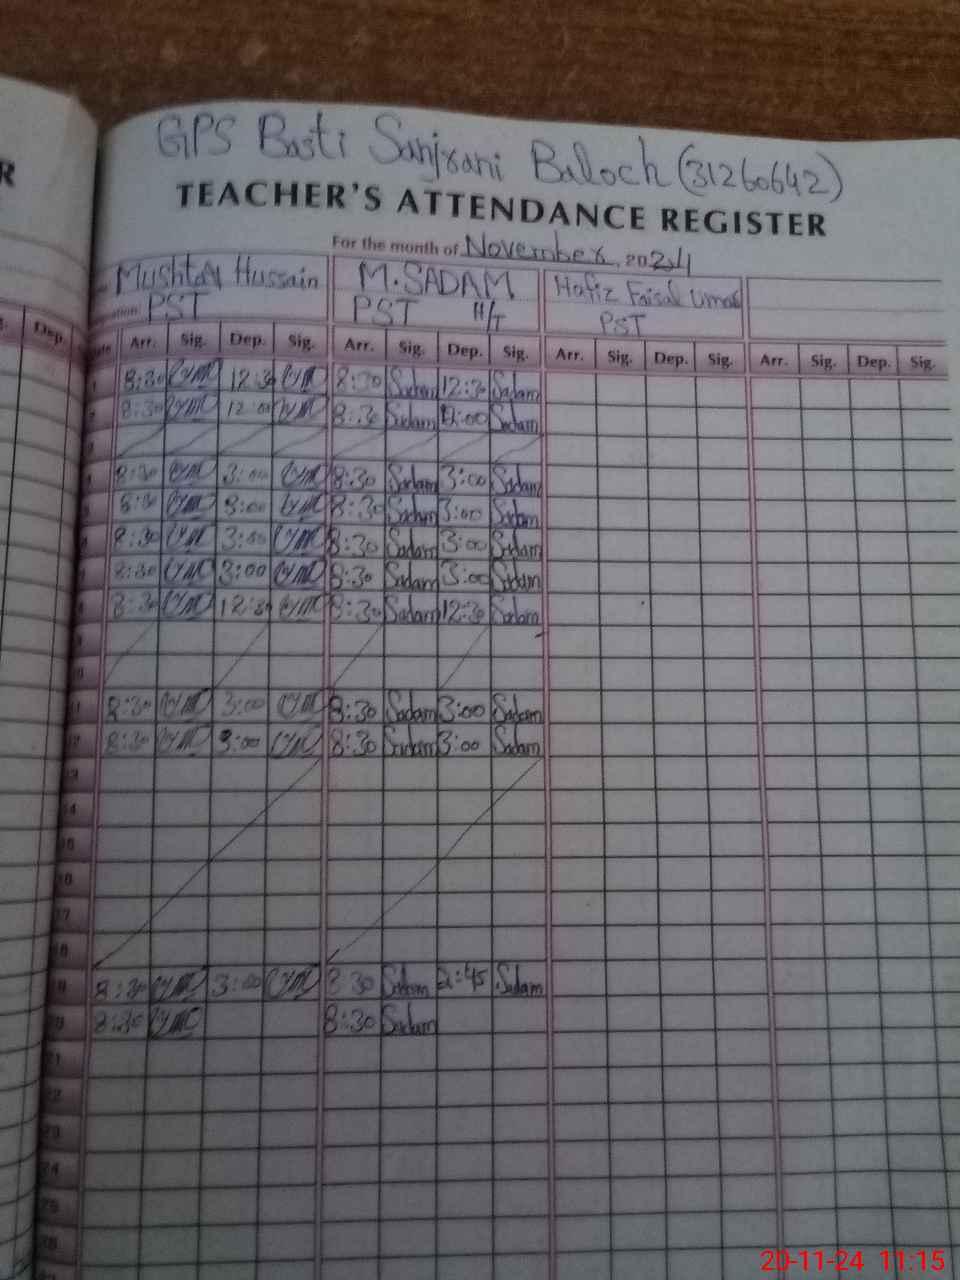 GPS Basti Sanjrani Baloch (31260642)
R
TEACHER'S ATTENDANCE REGISTER
For the month of November, 2024
Mushtaq Hussain M.SADAM Hafiz Faisal Umar
PST PST H/T PST
Dep. Arr. Sig. Dep. Sig. Arr. Sig. Dep. Sig. Arr. Sig. Dep. Sig. Arr. Sig. Dep. Sig.
1 8:30 12:30 8:30 Sadam 12:30 Sadam
2 8:30 12:00 8:30 Sadam 12:00 Sadam
4 8:30 3:00 8:30 Sadam 3:00 Sadam
5 8:30 3:00 8:30 Sadam 3:00 Sadam
8:30 3:00 8:30 Sadam 3:00 Sadam
7 8:30 3:00 8:30 Sadam 3:00 Sadam
8 8:30 12:30 8:30 Sadam 12:30 Sadam
9
10
11 8:30 3:00 8:30 Sadam 3:00 Sadam
12 8:30 3:00 8:30 Sadam 3:00 Sadam
13
14
16
17
18
8:30 3:00 8:30 Sadam 2:45 Sadam
20 8:30 8:30 Sadam
21
22
23
24
25
26
20-11-24 11:15